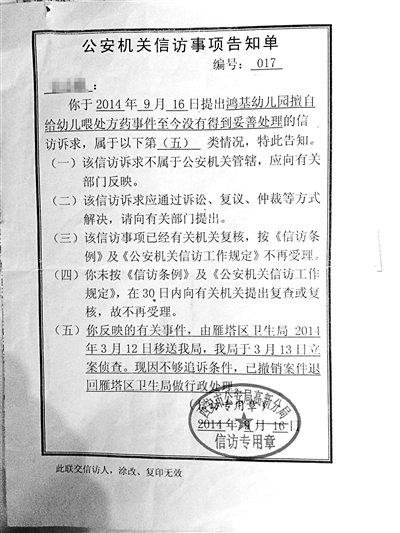 公安机关信访事项告知单
编号：017
：
你于2014年9月16日提出鸿基幼儿园擅自
给幼儿喂处方药事件至今没有得到妥善处理的信
访诉求，属于以下第（五）类情况，特此告知。
（一）该信访诉求不属于公安机关管辖，应向有关
部门反映。
（二）该信访诉求应通过诉讼、复议、仲裁等方式
解决，请向有关部门提出。
（三）该信访事项已经有关机关复核，按《信访条
例》及《公安机关信访工作规定》不再受理。
（四）你未按《信访条例》及《公安机关信访工作
规定》，在30日内向有关机关提出复查或复
核，故不再受理。
（五）你反映的有关事件，由雁塔区卫生局2014
年3月12日移送我局，我局于3月13日立
案侦查。现因不够追诉条件，已撤销案件退
回雁塔区卫生局做行政处理。
西安市公安局高新分局
（专用章）
2014年9月16日
信访专用章
此联交信访人，涂改、复印无效